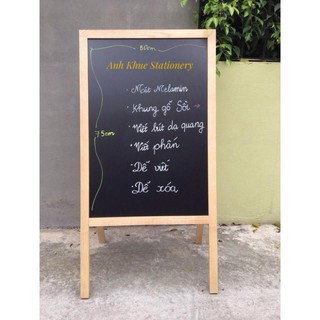 80cm
Anh Khue Stationery
. Mặt Melamin
. Khung gỗ Sồi
. Viết bút dạ quang
75cm
. Viết phấn
. Dễ viết
. Dễ xóa